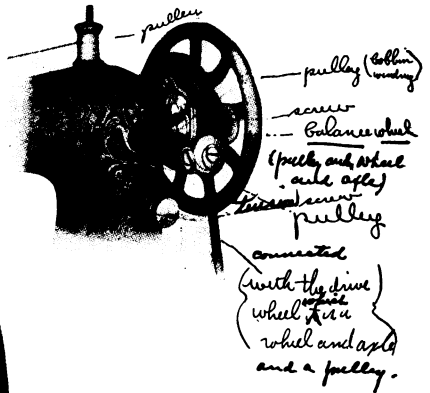 pulley
pulley (bobbin
winding)
screw
balance wheel
(pulley and wheel
and axle)
tension screw
pulley
connected
(with the drive
wheel which is a
wheel and axle)
and a pulley.